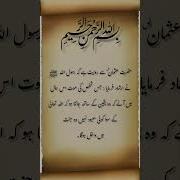 بسم الله الرحمن الرحيم
حضرت عثمانؓ سے روایت ہے کہ رسول اللہ ﷺ
نے ارشاد فرمایا : جس شخص کی موت اس حال
میں آئے کہ وہ یقین کے ساتھ جانتا ہو کہ اللہ تعالیٰ
کے سوا کوئی معبود نہیں وہ جنت
میں داخل ہوگا۔